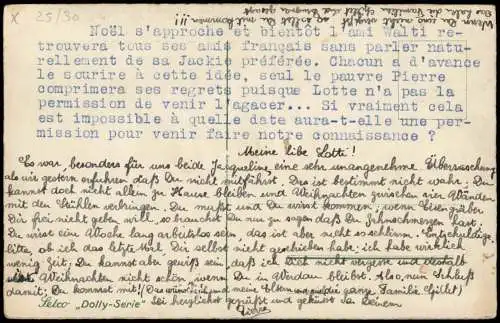 X 25/30
Noël s'approche et bientôt l'ami Walti re-
trouvera tous ses amis français sans parler natu-
rellement de sa Jackie préférée. Chacun a d'avance
le sourire à cette idée, seul le pauvre Pierre
comprimera ses regrets puisque Lotte n'a pas la
permission de venir l'agacer... Si vraiment cela
est impossible à quelle date aura-t-elle une per-
mission pour venir faire notre connaissance ?
Meine libe Lotti!
Es war, besonders für uns beide Jacqueline eine sehr unangenehme Überraschung
als wir gestern erfuhren daß Du nicht mitfährst. Das ist bestimmt nicht wahr; Du
kannst doch nicht allein zu Hause bleiben und Weihnachten zwischen vier Wänden
mit den Stühlen verbringen. Du mußt und Du wirst kommen; wenn Eisengräber
Dir frei nicht geben will, so brauchst Du nur zu sagen daß Du Zahnschmerzen hast.
Du wirst eine Woche lang arbeitslos sein, das ist aber nicht so schlimm. Entschuldige,
bitte, ob ich das letzte Mal Dir selbst nicht geschieben habe; ich habe wirklich
wenig Zeit. Du kannst aber gewiß sein daß ich Dich nicht vergesse und deshalb
wird Weihnachten nicht schön, wenn Du in Werdau bleibst. Also, nun Schluß
damit: Du kommst mit! (Das wünsche ich und meine Eltern und die ganze Familie (giltet)
Sei herzlichst gegrüßt und geküsst von Deinem
Pierre
Selco "Dolly-Serie"